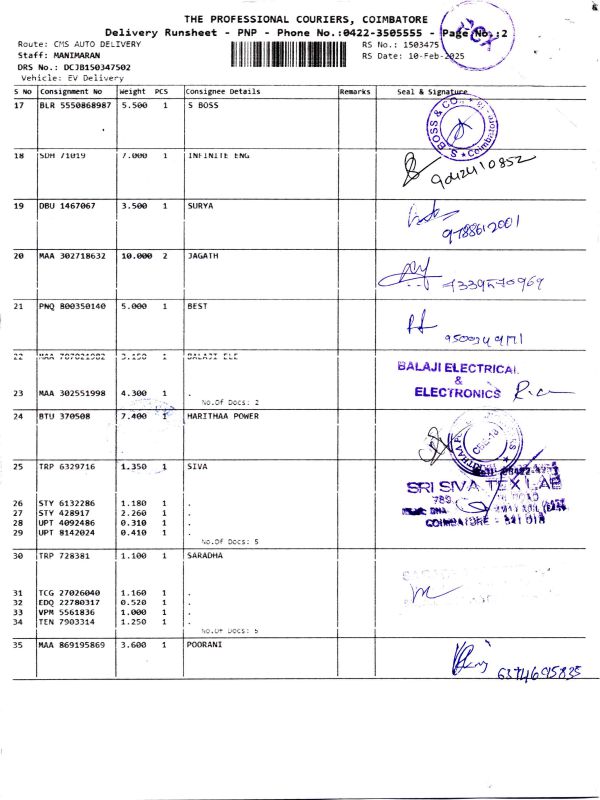 THE PROFESSIONAL COURIERS, COIMBATORE
Delivery Runsheet - PNP - Phone No.:0422-3505555 - Page No.:2
Route: CMS AUTO DELIVERY RS No.: 1503475
Staff: MANIMARAN RS Date: 10-Feb-2025
DRS No.: DCJB150347502
Vehicle: EV Delivery
S No Consignment No Weight PCS Consignee Details Remarks Seal & Signature
17 BLR 5550868987 5.500 1 S BOSS
S. BOSS & CO. Coimbatore
18 SDH 71019 7.000 1 INFINITE ENG
9042410852
19 DBU 1467067 3.500 1 SURYA
9788612001
20 MAA 302718632 10.000 2 JAGATH
7339570969
21 PNQ 800350140 5.000 1 BEST
22 MAA 787821982 3.150 1 BALAJI ELE
BALAJI ELECTRICAL
&
ELECTRONICS
23 MAA 302551998 4.300 1 .
No.Of Docs: 2
24 BTU 370508 7.400 1 HARITHAA POWER
25 TRP 6329716 1.350 1 SIVA
SRI SIVA TEX LAB
26 STY 6132286 1.180 1 .
27 STY 428917 2.260 1 .
28 UPT 4092486 0.310 1 .
29 UPT 8142024 0.410 1 .
COIMBATORE - 641 018
No.Of Docs: 5
30 TRP 728381 1.100 1 SARADHA
31 TCG 27026040 1.160 1 .
32 EDQ 22780317 0.520 1 .
33 VPM 5561836 1.000 1 .
34 TEN 7903314 1.250 1 .
No.Of Docs: 5
35 MAA 869195869 3.600 1 POORANI
6374695835